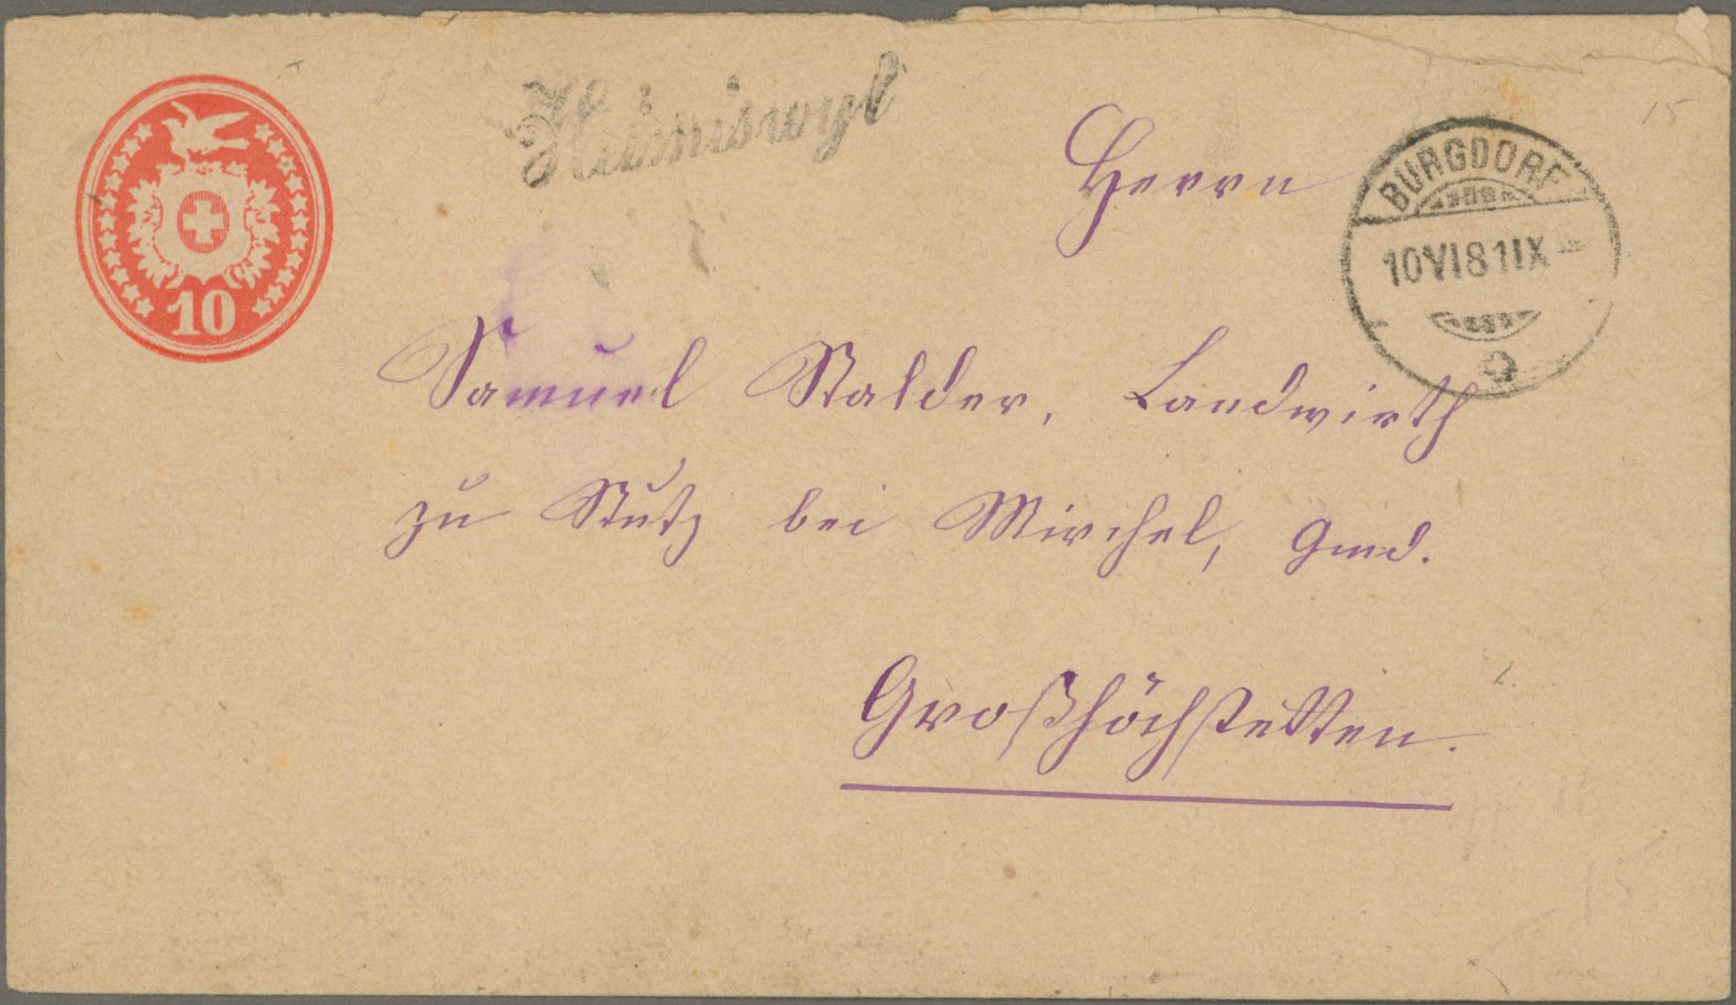 10
Heimiswyl
Herrn
BURGDORF
10 VI 81 IX
Samuel Stalder, Landwirth
zu Stutz bei Mirchel, Gmd.
Großhöchstetten.
15
15